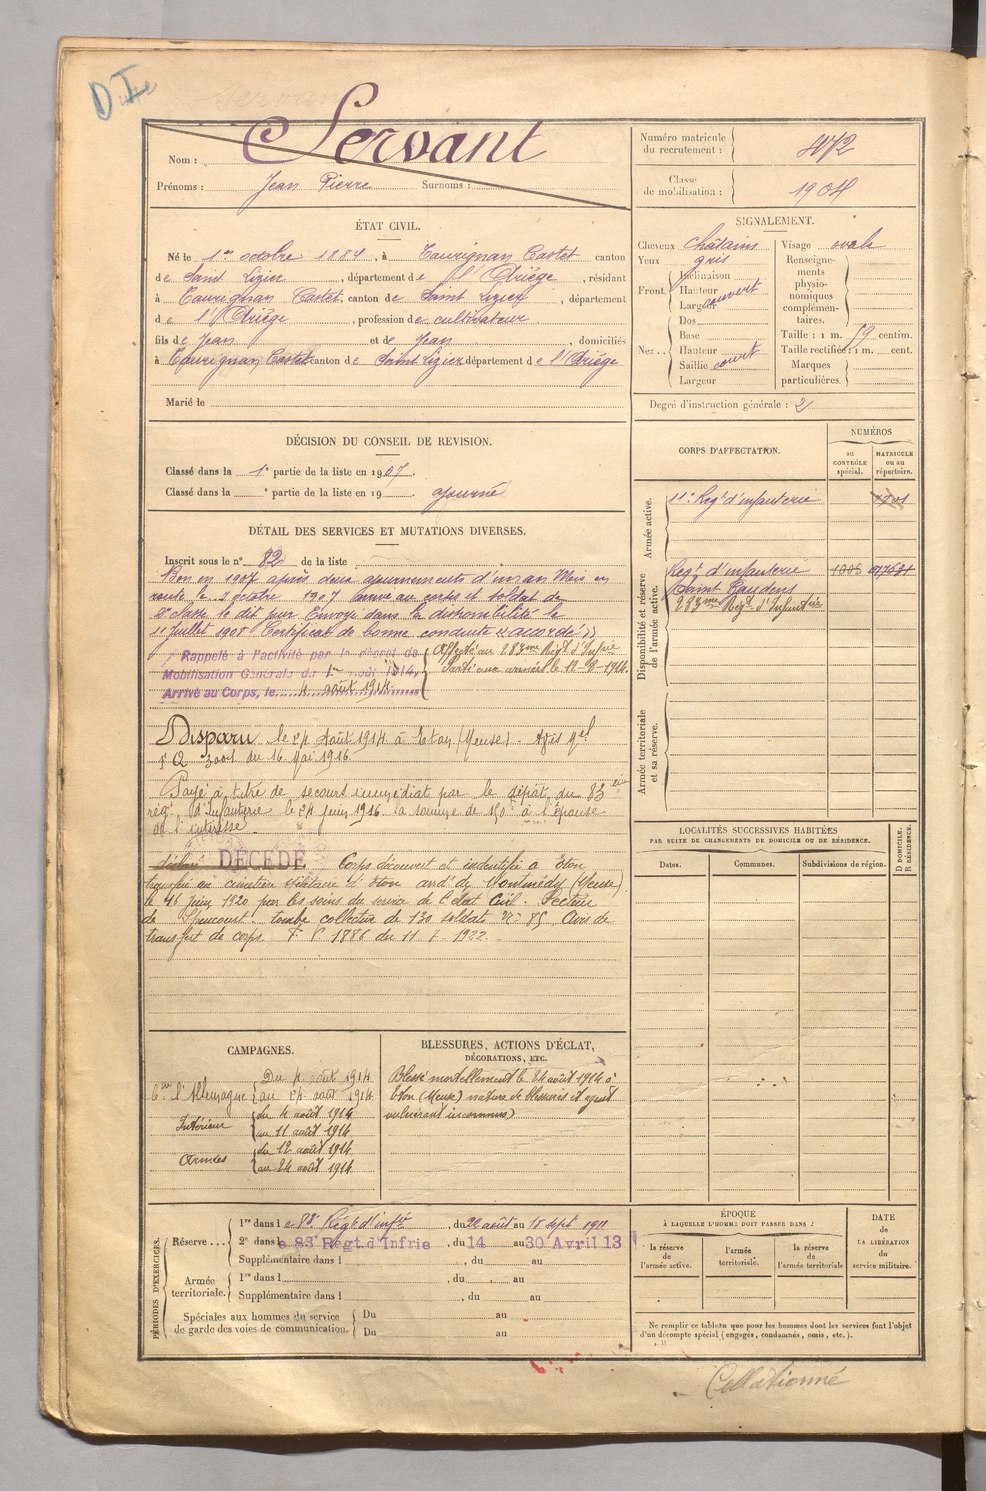 Servant
Nom :
Prénoms : Jean Pierre Surnoms :
Numéro matricule du recrutement : 472
Classe de mobilisation : 1904
ÉTAT CIVIL.
Né le 1er octobre 1884, à Taurignan Castet canton
de Saint Lizier, département de l'Ariège, résidant
à Taurignan Castet, canton de Saint Lizier, département
de l'Ariège, profession de cultivateur
fils de Jean et de Jean domiciliés
à Taurignan Castet canton de Saint Lizier département de l'Ariège
Marié le
SIGNALEMENT.
Cheveux châtains
Yeux gris
Front Inclinaison
Hauteur
Largeur couvert
Nez Dos
Base
Hauteur
Saillie court
Largeur
Visage ovale
Renseignements physionomiques complémentaires.
Taille : 1 m. 59 centim.
Taille rectifiée : 1 m. cent.
Marques particulières.
Degré d'instruction générale : 2
DÉCISION DU CONSEIL DE REVISION.
Classé dans la 1e partie de la liste en 1907.
Classé dans la e partie de la liste en 19 . ajourné
CORPS D'AFFECTATION.
NUMÉROS
AU CONTRÔLE spécial.
MATRICULE ou au répertoire.
Armée active.
11e Regt d'infanterie
Disponibilité et réserve de l'armée active.
Regt d'infanterie
Saint Gaudens
283me Regt d'Infanterie
Armée territoriale et sa réserve.
DÉTAIL DES SERVICES ET MUTATIONS DIVERSES.
Inscrit sous le n° 82 de la liste
Bon en 1907 après deux ajournements d'un an Mis en
route le 7 octobre 1907 Arrivé au corps et soldat de
2e classe le dit jour Envoyé dans la disponibilité le
11 Juillet 1908 Certificat de bonne conduite "accordé"
Rappelé à l'activité par le décret de
Mobilisation Générale du 1er août 1914,
Arrivé au Corps, le 4 août 1914
Affecté au 283me Régt d'Infrie
Parti aux armées le 12-8-1914.
Disparu le 24 Août 1914 à Eton (Meuse) - Avis
du 16 Mai 1916.
Payé à titre de secours immédiat par le dépôt du 83ème
régt d'Infanterie le 24 juin 1916 la somme de 150f à l'épouse
de l'intéressé
déclaré DÉCÉDÉ Corps découvert et indentifié à Eton
transféré en cimetière militaire d'Eton arrdt de Montmédy (Meuse)
le 16 juin 1920 par les soins du service de l'état Civil. Secteur
de Spincourt. tombe collective de 130 soldat n° 85. Avis de
transfert de corps F. P 1886 du 11-7-1922.
LOCALITÉS SUCCESSIVES HABITÉES
PAR SUITE DE CHANGEMENTS DE DOMICILE OU DE RÉSIDENCE.
Dates. Communes. Subdivisions de région.
D DOMICILE. R RÉSIDENCE.
CAMPAGNES.
Cne l'Allemagne Du 4 août 1914
au 24 août 1914
Intérieur du 4 août 1914
au 11 août 1914
Armées du 12 août 1914
au 24 août 1914
BLESSURES, ACTIONS D'ÉCLAT,
DÉCORATIONS, ETC.
Blessé mortellement le 24 août 1914 à
Eton (Meuse) nature de blessures et agent
vulnérant inconnus)
PÉRIODES D'EXERCICES.
Réserve ... 1re dans le 83e Régt d'infie, du 26 août au 17 sept 1911
2e dans le 83 Régt. d'Infrie, du 14 au 30 Avril 13
Supplémentaire dans l , du au
Armée territoriale. 1re dans l , du au
Supplémentaire dans l , du au
Spéciales aux hommes du service
de garde des voies de communication.
Du au
Du au
ÉPOQUE
À LAQUELLE L'HOMME DOIT PASSER DANS :
la réserve de l'armée active.
l'armée territoriale.
la réserve de l'armée territoriale
DATE de LA LIBÉRATION du service militaire.
Ne remplir ce tableau que pour les hommes dont les services font l'objet
d'un décompte spécial (engagés, condamnés, omis, etc.).
Collationné